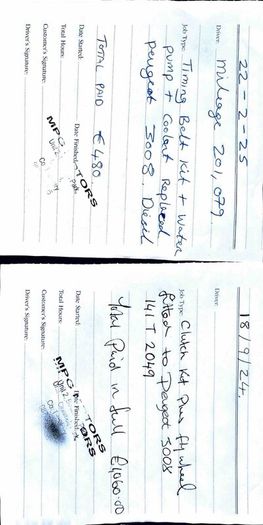 22 - 2 - 25
Driver: Mileage 201,079.
Job Type: Timing Belt Kit + Water
pump + Coolant Replaced
peugeot 3008. Diesel
TOTAL PAID €480
Date Started: Date Finished:
Total Hours:
Customer's Signature:
Driver's Signature:
MPG TORS
18/9/24.
Driver:
Job Type: Clutch Kit Plus flywheel
fitted to Peugeot 3008
141 T 2049
Total Paid in full €1060.00
Date Started: Date Finished:
Total Hours:
Customer's Signature:
Driver's Signature:
MPG TORS